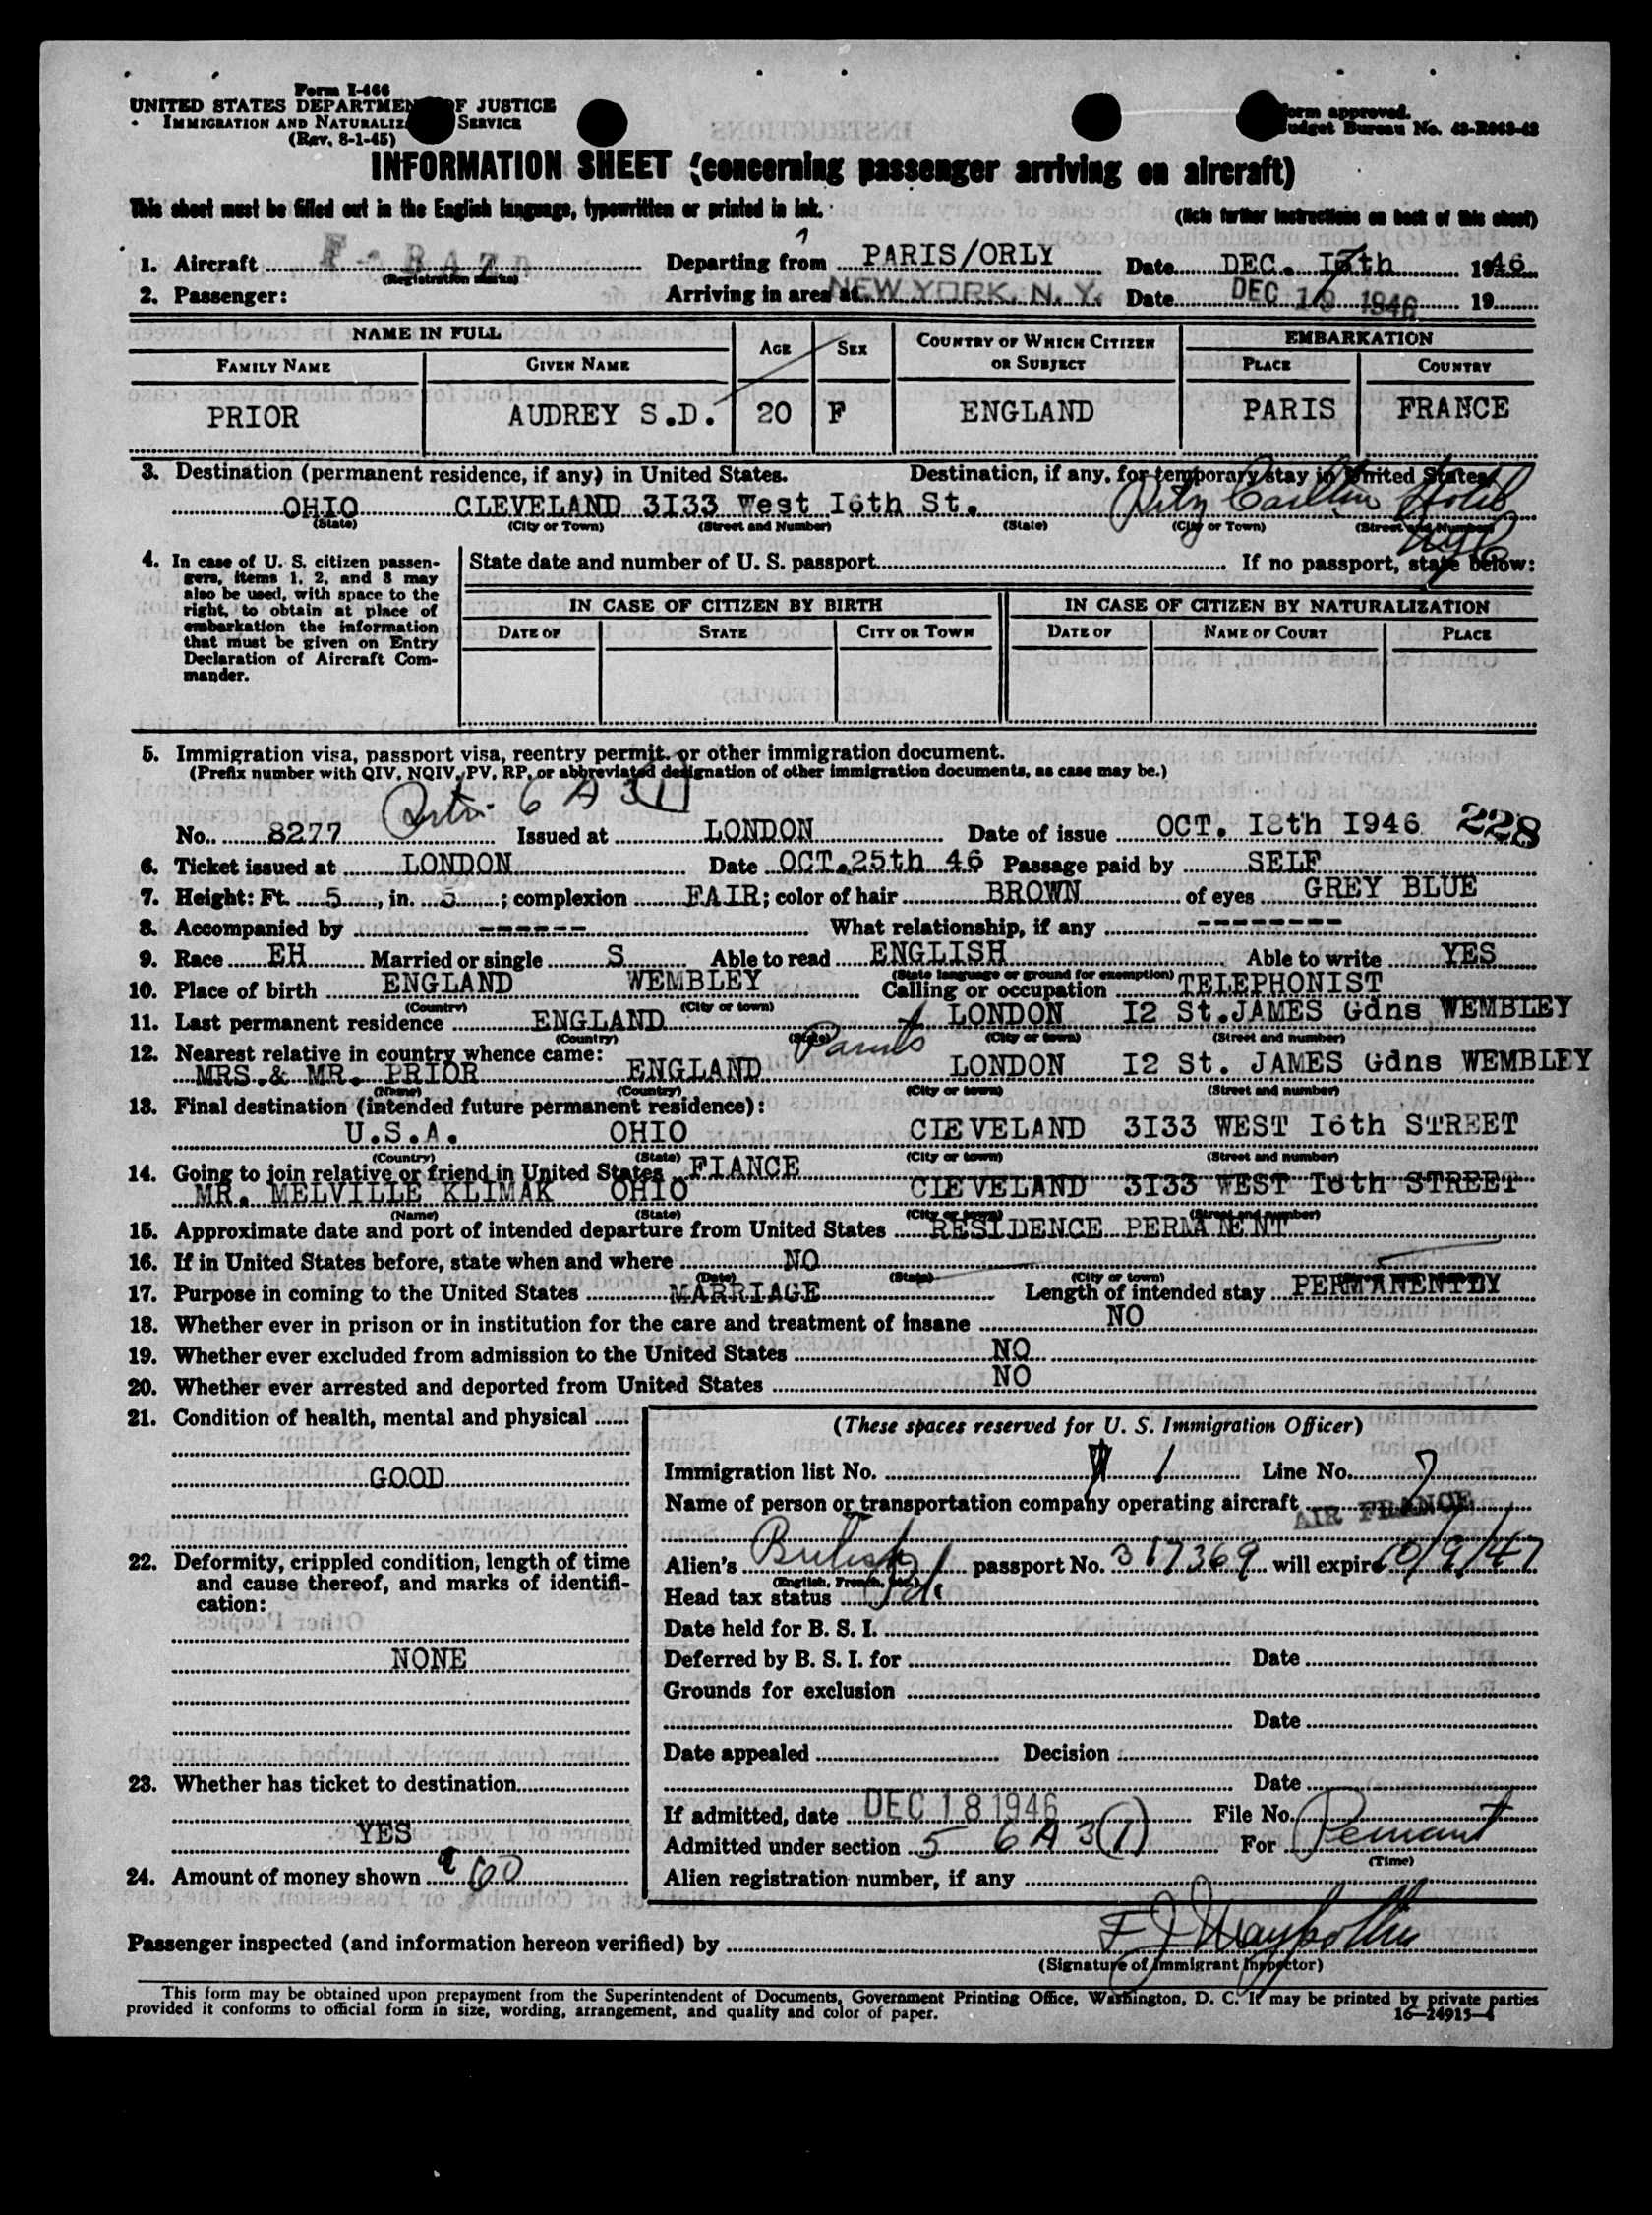 Form I-466
UNITED STATES DEPARTMENT OF JUSTICE
IMMIGRATION AND NATURALIZ SERVICE
(Rev. 8-1-45)
Form approved.
Budget Bureau No. 43-R063-42
INFORMATION SHEET (concerning passenger arriving on aircraft)
This sheet must be filled out in the English language, typewritten or printed in ink.
(Note further instructions on back of this sheet)
1. Aircraft (Registration marks) Departing from PARIS/ORLY Date DEC. 1946
2. Passenger: Arriving in area at NEW YORK, N. Y. Date DEC 1946 19
NAME IN FULL AGE SEX COUNTRY OF WHICH CITIZEN OR SUBJECT EMBARKATION
FAMILY NAME GIVEN NAME PLACE COUNTRY
PRIOR AUDREY S.D. 20 F ENGLAND PARIS FRANCE
3. Destination (permanent residence, if any) in United States. Destination, if any, for temporary stay in United States
OHIO CLEVELAND 3I33 West I6th St. Ritz Carlton Hotel
(State) (City or Town) (Street and Number) (State) (City or Town) (Street and Number)
NYC
4. In case of U. S. citizen passengers, items 1, 2, and 3 may also be used, with space to the right, to obtain at place of embarkation the information that must be given on Entry Declaration of Aircraft Commander.
State date and number of U. S. passport If no passport, state below:
IN CASE OF CITIZEN BY BIRTH IN CASE OF CITIZEN BY NATURALIZATION
DATE OF STATE CITY OR TOWN DATE OF NAME OF COURT PLACE
5. Immigration visa, passport visa, reentry permit, or other immigration document.
(Prefix number with QIV, NQIV, PV, RP, or abbreviated designation of other immigration documents, as case may be.)
6 A 3(1)
No. 8277 Issued at LONDON Date of issue OCT. I8th I946 228
6. Ticket issued at LONDON Date OCT.25th 46 Passage paid by SELF
7. Height: Ft. 5, in. 5; complexion FAIR; color of hair BROWN of eyes GREY BLUE
8. Accompanied by ------ What relationship, if any --------
9. Race EH Married or single S Able to read ENGLISH Able to write YES
(State language or ground for exemption)
10. Place of birth ENGLAND WEMBLEY Calling or occupation TELEPHONIST
(Country) (City or town)
11. Last permanent residence ENGLAND LONDON I2 St.JAMES Gdns WEMBLEY
(Country) (State) (City or town) (Street and number)
12. Nearest relative in country whence came: Parents
MRS.& MR. PRIOR ENGLAND LONDON I2 St. JAMES Gdns WEMBLEY
(Name) (Country) (City or town) (Street and number)
13. Final destination (intended future permanent residence):
U.S.A. OHIO CIEVELAND 3I33 WEST I6th STREET
(Country) (State) (City or town) (Street and number)
14. Going to join relative or friend in United States FIANCE
MR. MELVILLE KLIMAK OHIO CIEVELAND 3I33 WEST I6th STREET
(Name) (State) (City or town) (Street and number)
15. Approximate date and port of intended departure from United States RESIDENCE PERMANENT
16. If in United States before, state when and where NO
(Date) (State) (City or town)
17. Purpose in coming to the United States MARRIAGE Length of intended stay PERMANENTLY
18. Whether ever in prison or in institution for the care and treatment of insane NO
19. Whether ever excluded from admission to the United States NO
20. Whether ever arrested and deported from United States NO
21. Condition of health, mental and physical
GOOD
22. Deformity, crippled condition, length of time and cause thereof, and marks of identification:
NONE
23. Whether has ticket to destination
YES
24. Amount of money shown 60
(These spaces reserved for U. S. Immigration Officer)
Immigration list No. 1 Line No. 7
Name of person or transportation company operating aircraft AIR FRANCE
Alien's British passport No. 317369 will expire 10/9/47
(English, French, etc.)
Head tax status
Date held for B. S. I.
Deferred by B. S. I. for Date
Grounds for exclusion
Date
Date appealed Decision
Date
If admitted, date DEC 18 1946 File No.
Admitted under section 5 6A3(1) For Permanent
(Time)
Alien registration number, if any
Passenger inspected (and information hereon verified) by
(Signature of Immigrant Inspector)
This form may be obtained upon prepayment from the Superintendent of Documents, Government Printing Office, Washington, D. C. It may be printed by private parties
provided it conforms to official form in size, wording, arrangement, and quality and color of paper. 16—24915-1